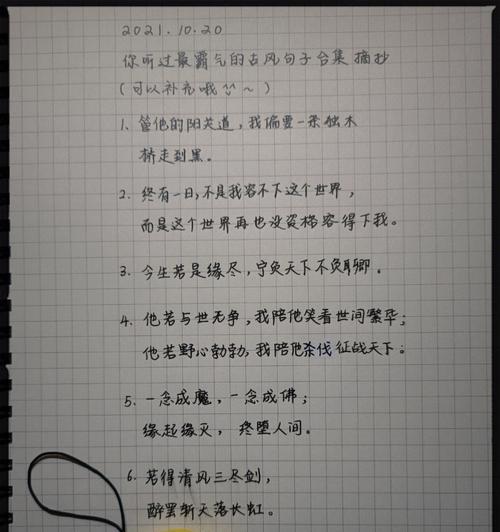 2021.10.20
你听过最霸气的古风句子合集 摘抄
(可以补充哦 ~)
1、管他的阳关道，我偏要一条独木
桥走到黑。
2. 终有一日，不是我容不下这个世界，
而是这个世界再也没资格容得下我。
3. 今生若是缘尽，宁负天下不负卿。
4. 他若与世无争，我陪他笑看世间繁华；
他若野心勃勃，我陪他杀伐征战天下。
5. 一念成魔，一念成佛；
缘起缘灭，终堕人间。
6. 若得清风三尽剑，
醉罢斩天落长虹。